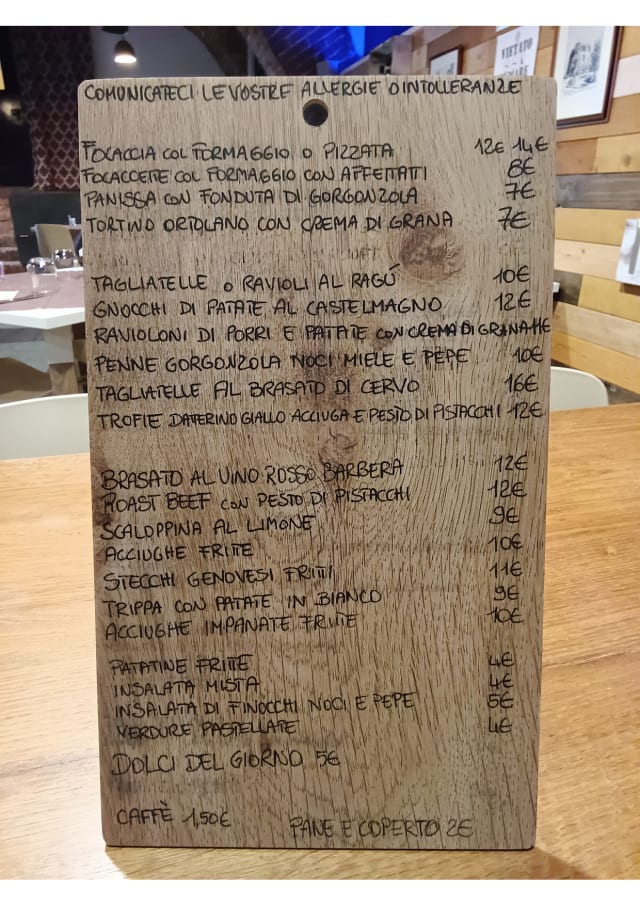 VIETATO
COMUNICATECI LE VOSTRE ALLERGIE O INTOLLERANZE
FOCACCIA COL FORMAGGIO O PIZZATA 12€ 14€
FOCACCETTE COL FORMAGGIO CON AFFETTATI 8€
PANISSA CON FONDUTA DI GORGONZOLA 7€
TORTINO ORTOLANO CON CREMA DI GRANA 7€
TAGLIATELLE O RAVIOLI AL RAGÚ 10€
GNOCCHI DI PATATE AL CASTELMAGNO 12€
RAVIOLONI DI PORRI E PATATE CON CREMA DI GRANA 11€
PENNE GORGONZOLA NOCI MIELE E PEPE 10€
TAGLIATELLE AL BRASATO DI CERVO 16€
TROFIE DATERINO GIALLO ACCIUGA E PESTO DI PISTACCHI 12€
BRASATO AL VINO ROSSO BARBERA 12€
ROAST BEEF CON PESTO DI PISTACCHI 12€
SCALOPPINA AL LIMONE 9€
ACCIUGHE FRITTE 10€
STECCHI GENOVESI FRITTI 11€
TRIPPA CON PATATE IN BIANCO 9€
ACCIUGHE IMPANATE FRITTE 10€
PATATINE FRITTE 4€
INSALATA MISTA 4€
INSALATA DI FINOCCHI NOCI E PEPE 5€
VERDURE PASTELLATE 4€
DOLCI DEL GIORNO 5€
CAFFÈ 1,50€ PANE E COPERTO 2€